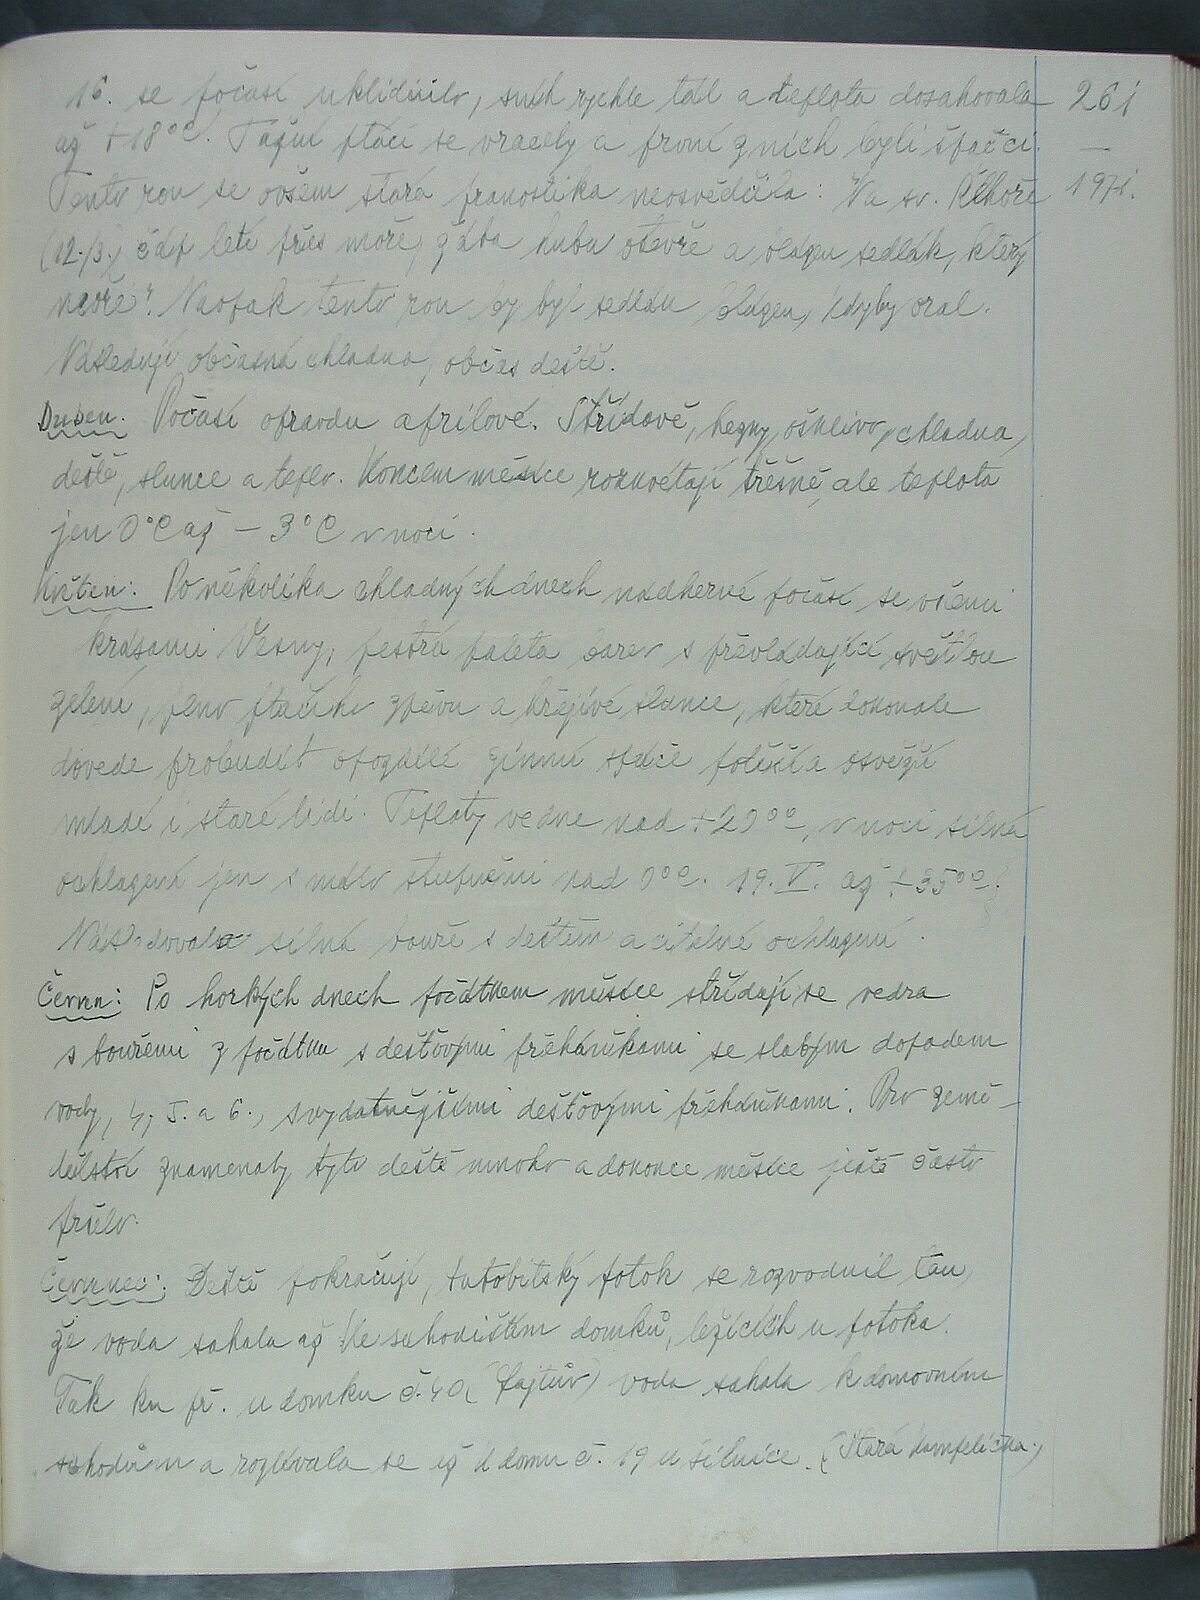 16. se počasí uklidnilo, sníh rychle tál a teplota dosahovala
261
až +18°C. Tažní ptáci se vraceli a první z nich byli špačci.
—
Tento rok se ovšem stará pranostika neosvědčila: "Na sv. Řehoře
1971.
(12./3.) čáp letí přes moře, žába hubu otevře a blázen sedlák, který
neoře". Naopak tento rok by byl sedlák blázen, kdyby oral.
Následují občasná chladna, občas deště.
Duben. Počasí opravdu aprílové. Střídavě, hezky, ošklivo, chladna,
deště, slunce a teplo. Koncem měsíce rozkvétají třešně, ale teplota
jen 0°C až – 3°C v noci.
Květen: Po několika chladných dnech nádherné počasí se všemi
krásami Vesny, pestrá paleta barev s převládající světlou
zelení, plno ptačího zpěvu a hřejivé slunce, které dokonale
dovede probudit opozdilé zimní spáče potěší a osvěží
mladé i staré lidi. Teploty ve dne nad +20°C, v noci silná
ochlazení jen s málo stupněmi nad 0°C. 19. V. až +35°C!
Následovala silná bouře s deštěm a citelné ochlazení.
Červen: Po horkých dnech počátkem měsíce střídají se vedra
s bouřemi z počátku s dešťovými přeháňkami se slabým dopadem
vody, 4, 5. a 6., s vydatnějšími dešťovými přeháňkami. Pro země-
dělství znamenaly tyto deště mnoho a dokonce měsíce ještě často
pršelo.
Červenec: Deště pokračují, tatobitský potok se rozvodnil tak,
že voda sahala až ke schodištím domků, ležících u potoka.
Tak ku př. u domku č. 40 (Pajtův) voda sahala k domovním
schodům a rozlévala se až k domu č. 19 u silnice. (Stará kampelička.)